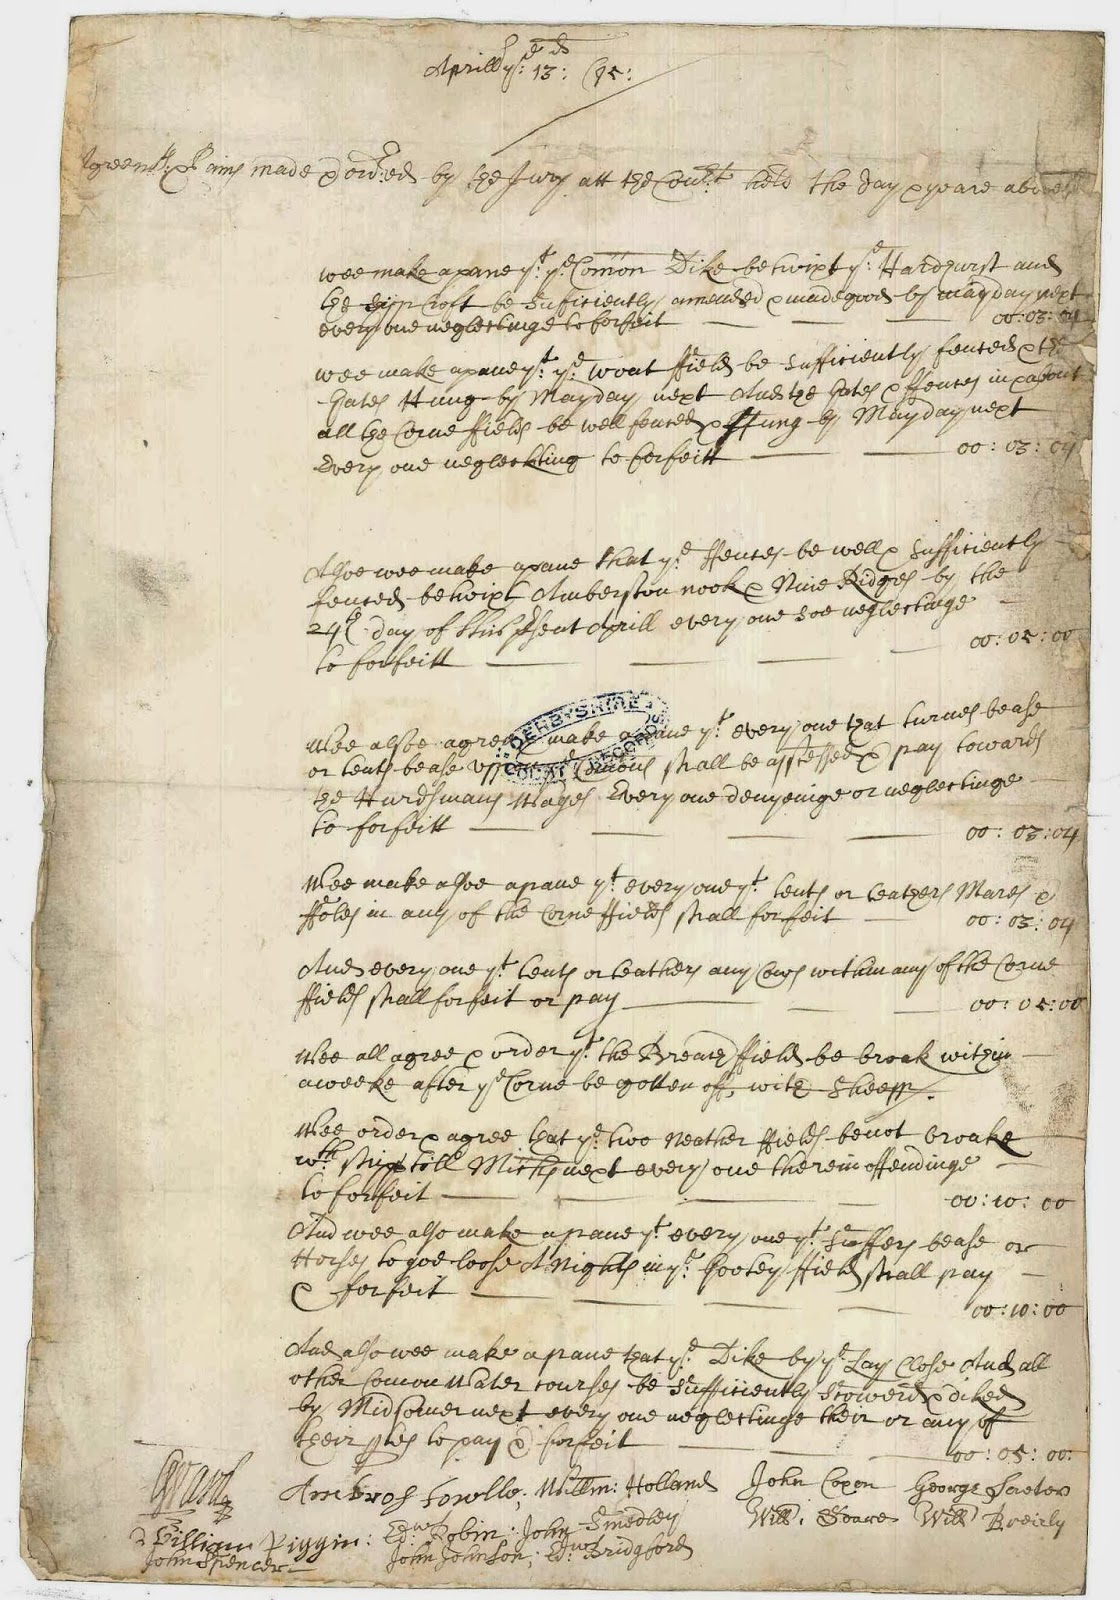 Aprill ye: 13: (95:
Agreemts: & Pains made & ordred by the Jury att the Court held the day & yeare above
wee make a pane yt: ye Comõn Dike betwixt ye: Hardhurst and
the Croft be Suficiently amended & made good by may day next
every one neglectinge to forfeit 00:03:04
wee make a pane yt: ye: wout ffield be Sufficiently fenced & the
Gates Hung by May day next And the Gates & ffences in & about
all the Corne ffields be well fenced & Hung by May day next
Every one neglectting to forfeitt 00:03:04
Alsoe wee make a pane that ye: ffences be well & Sufficiently
fenced betwixt Amberston nook & Nine Ridges by the
24th day of this psent Aprill every one soe neglectinge
to forfeitt 00:05:00
Wee alsoe agree make a pane yt: every one that turnes bease
or tents bease Comons shall be assessed & pay towards
the Hurdsmans Wages Every one denyeinge or neglectinge
to forfeitt 00:03:04
DERBYSHIRE
RECORDS
Wee make alsoe a pane yt every one yt: tents or teathers Mares &
ffoles in any of the Corne ffields shall forfeit 00:03:04
And every one yt tents or teathers any Cows within any of the Corne
ffields shall forfeit or pay 00:05:00
Wee all agree & order yt: the Breach ffield be broak within
a weeke after ye Corne be gotten off, with Sheepp.
Wee order & agree that ye: two Neather ffields be not broake
wth till next every one therein offendinge
to forfeit 00:10:00
And wee also make a pane yt every one yt: Suffers bease or
Horses to goe loose A Nights in ye: Gooley ffield shall pay
& forfeit 00:10:00
And also wee make a pane that ye: Dike by ye Lay Close And all
other Comon Water courses be Sufficiently Scowerd & diked
by Midsomer next every one neglectinge their or any of
their to pay & forfeit 00:05:00:
Ambros Willm: Holland John Coxon George Sretor
Edwd: Robin: John Smedley Will: Soare Will Breirly
William Piggin: John Johnson; Edwd: Bridgford
John Spencer